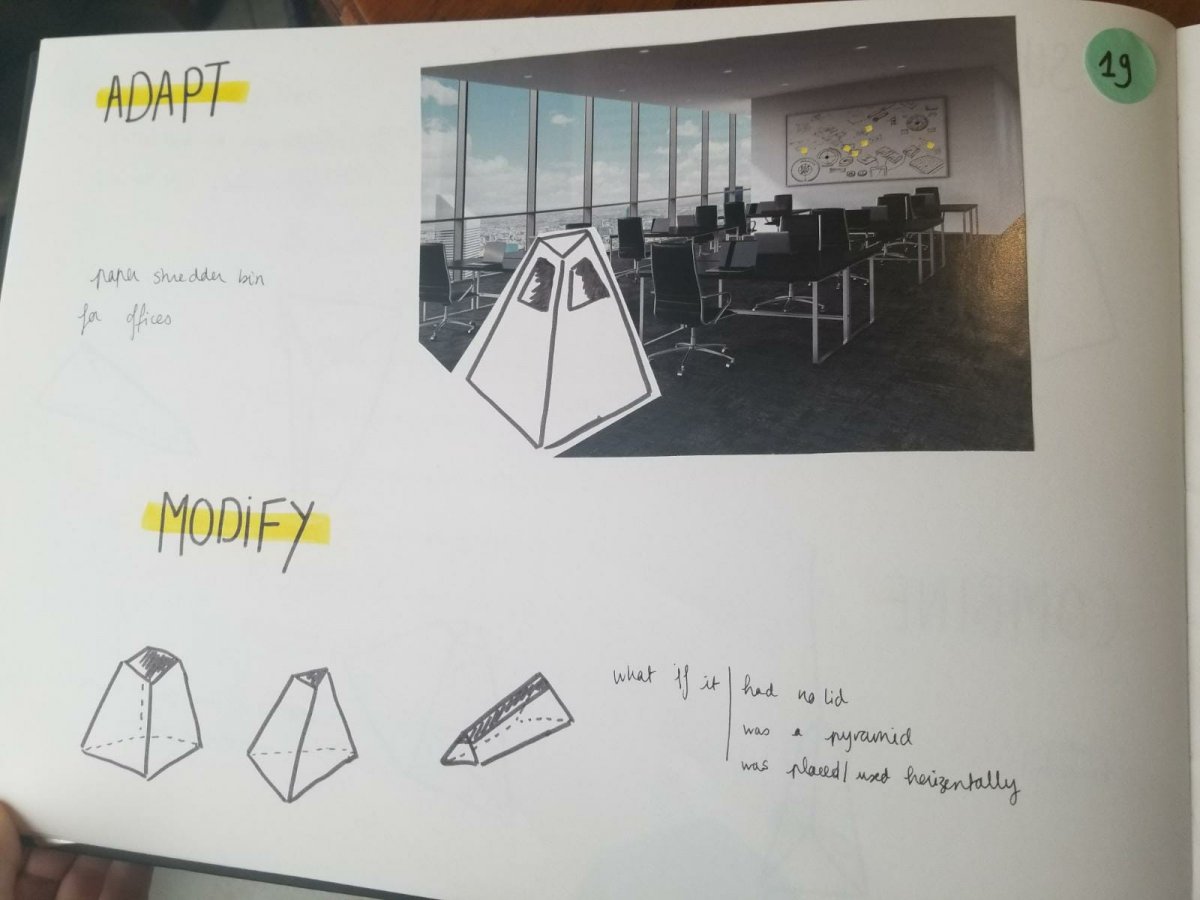 ADAPT
19
paper shredder bin
for offices
MODiFY
what if it
had no lid
was a pyramid
was placed/used horizentally